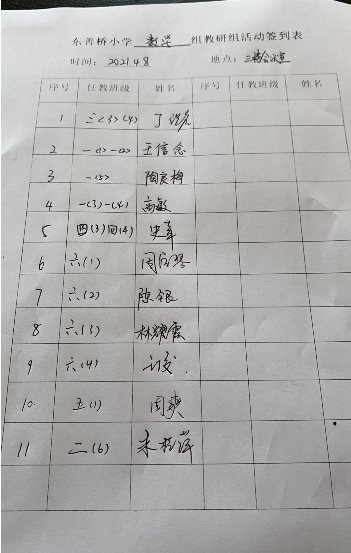 东善桥小学 数学 组教研组活动签到表
时间: 2021.4.8 地点: 三楼会议室
序号 任教班级 姓名 序号 任教班级 姓名
1 三(3)(4) 丁
2 一(1)一(2) 王信念
3 一(5) 陶良梅
4 一(3)一(4) 高敏
5 四(3)四(4) 史草
6 六(1) 周
7 六(2) 陈银
8 六(3) 林耀霞
9 六(4)
10 五(1) 周爽
11 二(6) 朱桂萍